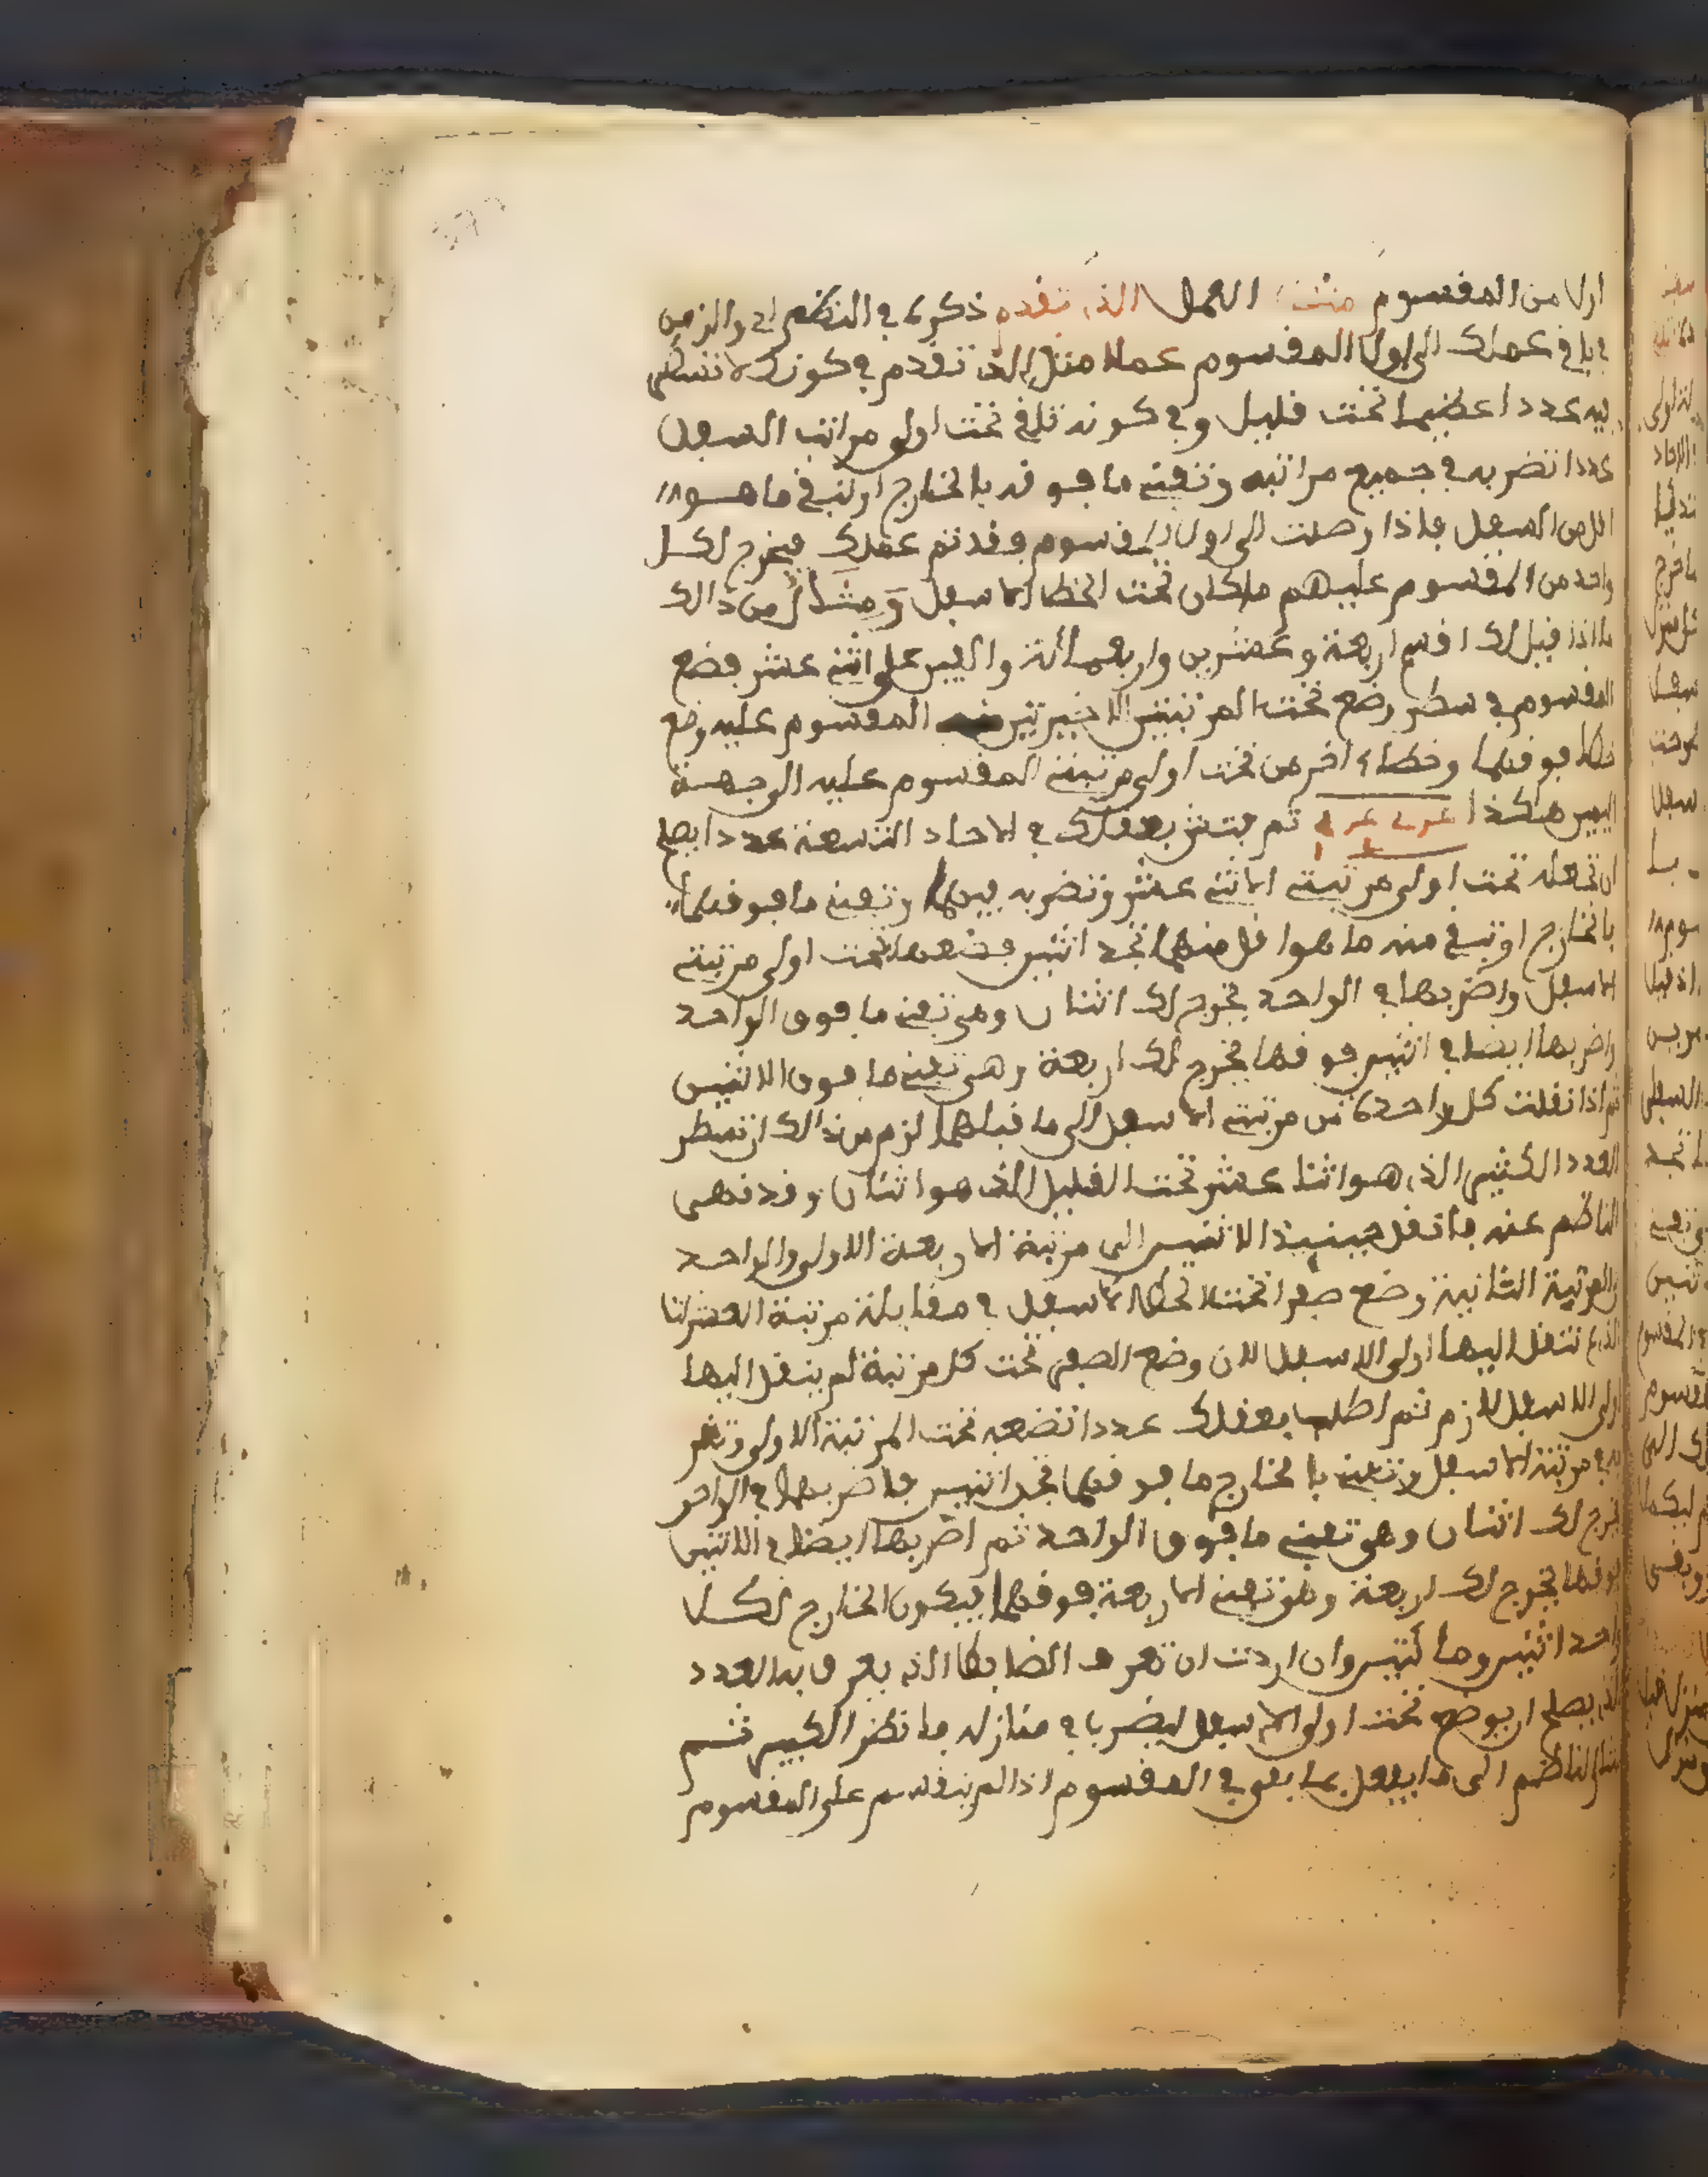 اولا من المقسوم مثل العمل الذي تقدم ذكره في النظم اي والزمن
في باقي عملك الى اولا المقسوم عملا مثل الذي تقدم في كونك لا تسطر
فيه عددا عظيما تحت قليل وفي كونه تلقي تحت اولى مراتب السفل
عددا تضربه في جميع مراتبه وتفني ما فوقه بالخارج او تبقي ما هو
اقل من السفل فاذا وصلت الى اولا المقسوم فقد تم عملك فيخرج لكل
واحد من المقسوم عليهم ما كان تحت الخط الاسفل ومثال من ذالك
ما اذا قيل لك اقسم اربعة وعشرين واربعمائة والفين على اثني عشر فضع
المقسوم في سطر وضع تحت المرتبتين الاخيرتين منه المقسوم عليه وضع
خطا فوقهما وخطاء اخر من تحت اولى مرتبتي المقسوم عليه الى جهة
اليمين هكذا ثم فتش بعقلك في الاحاد التسعة عددا يصلح
ان تجعله تحت اولى مرتبتي الاثني عشر وتضربه فيهما وتفني ما فوقهما
بالخارج او تبقي منه ما هو اقل منهما تجد اثنين فضعها تحت اولى مرتبتي
الاسفل واضربها في الواحد يخرج لك اثنان وهي تفني ما فوق الواحد
واضربها ايضا في اثنين فوقها يخرج لك اربعة وهي تفني ما فوق الاثنين
ثم اذا نقلت كل واحدة من مرتبتي الاسفل الى ما قبلهما لزم من ذالك ان تسطر
العدد الكثير الذي هو اثنا عشر تحت القليل الذي هو اثنان وقد نهى
الناظم عنه فانقل حينيذ الاثنين الى مرتبة الاربعة الاولى والواحد
والمرتبة الثانية وضع صفرا تحت الخط الاسفل في مقابلة مرتبة العشرات
الذي تنتقل اليها اولى الاسفل لان وضع الصفر تحت كل مرتبة لم ينقل اليها
اولى الاسفل لازم ثم اطلب بعقلك عددا تضعه تحت المرتبة الاولى وتضر
به في مرتبتي الاسفل وتفني بالخارج ما فوقهما تجد اثنين فاضربها في الواحد
يخرج لك اثنان وهي تفني ما فوق الواحد ثم اضربها ايضا في الاثنين
فوقها يخرج لك اربعة وهي تفني الاربعة فوقهما فيكون الخارج لكل
واحد اثنين ومائتين وان اردت ان تعرف الضابط الذي يعرف به العدد
الذي يصلح ان يوضع تحت اولى الاسفل ليضربا في منازله فانظر الكبير ثم
اشار الناظم الى ما يفعل بما بقي في المقسوم اذا لم ينقسم على المقسوم